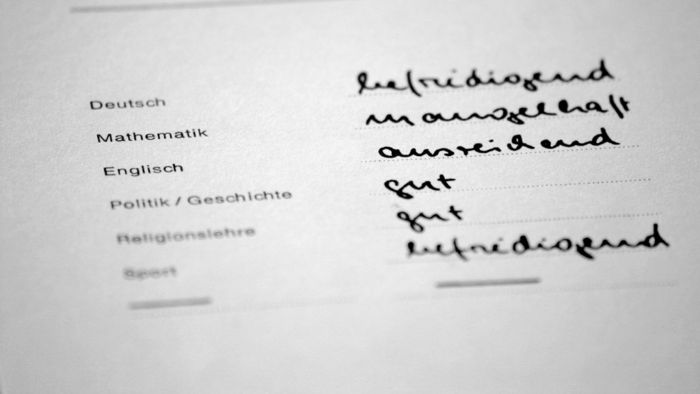 Deutsch befridigend
Mathematik mangelhaft
Englisch ausreichend
Politik / Geschichte gut
Religionslehre gut
Sport befridigend